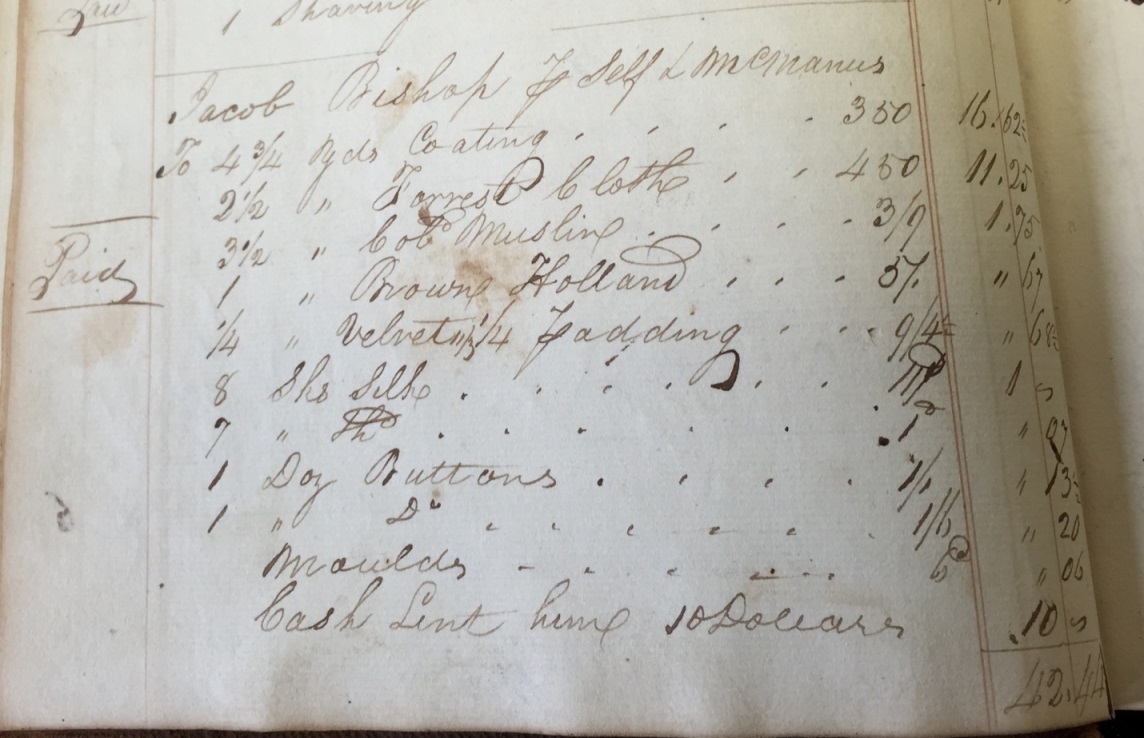 1 Shaving
Jacob Bishop P Self & McManus
To 4 3/4 Yds Coating . . . . 350 16.62
2 1/2 " Forrest Cloth . . 450 11.25
3 1/2 " Cold Muslin . . . . 3/9 1.75
Paid
1 " Brown Holland . . . 5/. " 67
1/4 " Velvet 1/4 Padding . . . 9/4 " 68
8 Sks Silk . . . . . . 1 "
7 " Thd . . . . . 1d " 07
1 Doz Buttons . . . . 1/. " 13
1 " Do . . . . . 1/6 " 20
Moulds - . . . . 6d " 06
Cash Lent him 10 Dollars .10 "
42.44